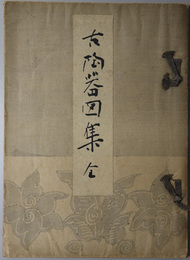 古陶器図集 全